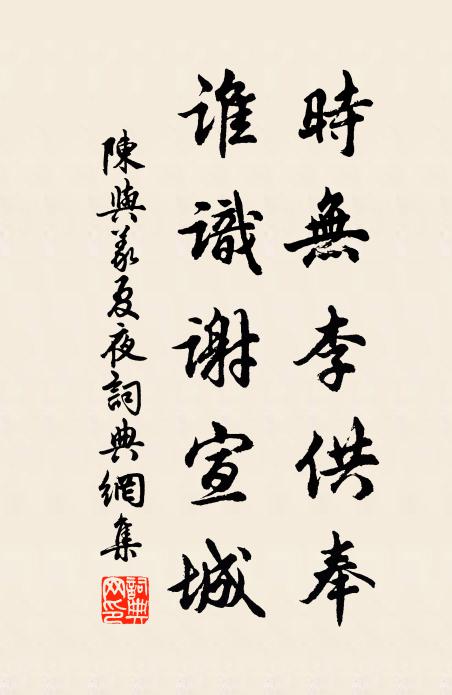 時無李供奉
誰識謝宣城
陳與義夏夜詞典網集
詞典網印